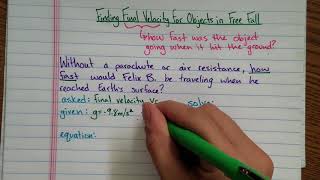 Finding Final Velocity for Objects in Free Fall
↳ how fast was the object
going when it hit the ground?
Without a parachute or air resistance, how
fast would Felix B. be traveling when he
reached Earth's surface?
asked: final velocity Vf solve:
given: g=-9.8m/s²
equation: